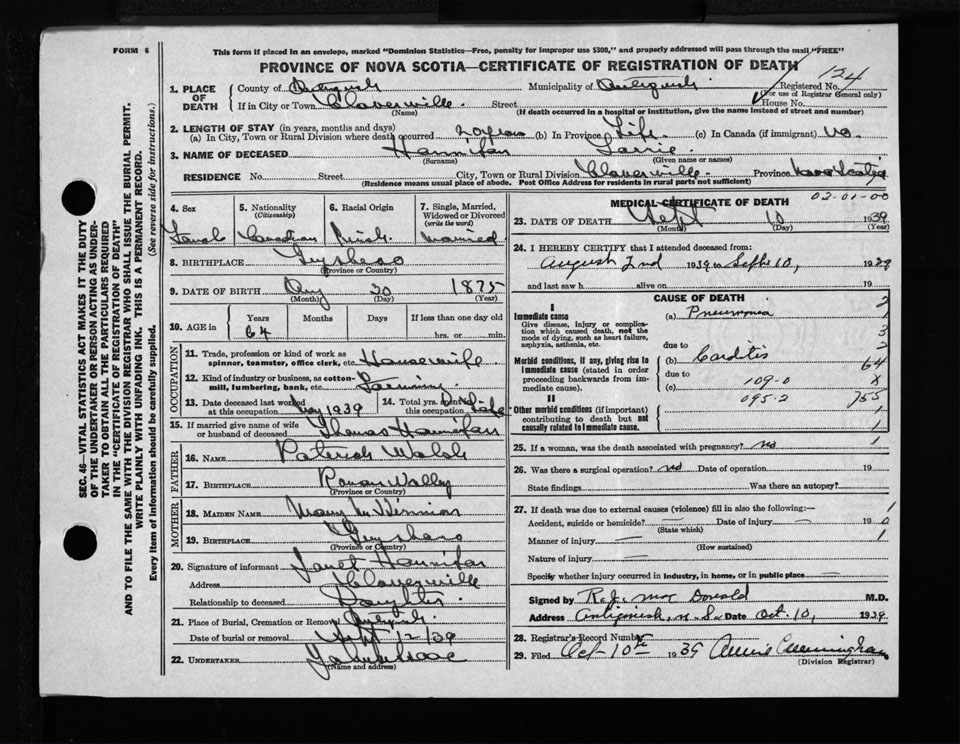 FORM 6
This form if placed in an envelope, marked "Dominion Statistics—Free, penalty for improper use $300," and properly addressed will pass through the mail "FREE"
PROVINCE OF NOVA SCOTIA—CERTIFICATE OF REGISTRATION OF DEATH
124
1. PLACE OF DEATH
County of Antigonish Municipality of Antigonish Registered No.
(For use of Registrar General only)
If in City or Town Cloverville Street House No.
(Name) (If death occurred in a hospital or institution, give the name instead of street and number)
2. LENGTH OF STAY (in years, months and days)
(a) In City, Town or Rural Division where death occurred 20 years (b) In Province Life (c) In Canada (if immigrant) no.
3. NAME OF DECEASED Hannifan
(Surname) (Given name or names)
RESIDENCE No. Street City, Town or Rural Division Cloverville Province Nova Scotia
(Residence means usual place of abode. Post Office Address for residents in rural parts not sufficient)
4. Sex Female
5. Nationality (Citizenship) Canadian
6. Racial Origin Irish
7. Single, Married, Widowed or Divorced (write the word) Married
8. BIRTHPLACE Guysboro
(Province or Country)
9. DATE OF BIRTH Aug 30 1875
(Month) (Day) (Year)
10. AGE in Years Months Days If less than one day old
64 hrs. or min.
OCCUPATION
11. Trade, profession or kind of work as spinner, teamster, office clerk, etc. Housewife
12. Kind of industry or business, as cotton-mill, lumbering, bank, etc. Farming
13. Date deceased last worked at this occupation May 1939
14. Total yrs. spent in this occupation Life
15. If married give name of wife or husband of deceased Thomas Hannifan
FATHER
16. Name Patrick Walsh
17. Birthplace Roman Valley
(Province or Country)
MOTHER
18. MAIDEN NAME Mary
19. BIRTHPLACE Guysboro
(Province or Country)
20. Signature of informant Janet Hannifan
Address Cloverville
Relationship to deceased Daughter
21. Place of Burial, Cremation or Removal Antigonish
Date of burial or removal Sept 12/39
22. UNDERTAKER
(Name and address)
MEDICAL CERTIFICATE OF DEATH 02-01-00
23. DATE OF DEATH Sept 10 1939
(Month) (Day) (Year)
24. I HEREBY CERTIFY that I attended deceased from:
August 2nd 1939 to Sept 10, 1939
and last saw h alive on 19
CAUSE OF DEATH
I
Immediate cause (a) Pneumonia
Give disease, injury or complication which caused death, not the mode of dying, such as heart failure, asphyxia, asthenia, etc.
due to
Morbid conditions, if any, giving rise to immediate cause (stated in order proceeding backwards from immediate cause).
(b) Carditis
due to
(c) 109-0
II 095-2
Other morbid conditions (if important) contributing to death but not causally related to immediate cause.
2
1
3
2
64
X
755
1
1
25. If a woman, was the death associated with pregnancy? no 1
26. Was there a surgical operation? no Date of operation 19
State findings Was there an autopsy?
27. If death was due to external causes (violence) fill in also the following:— 1
Accident, suicide or homicide? — Date of injury — 19 0
(State which) 1
Manner of injury —
(How sustained)
Nature of injury —
Specify whether injury occurred in industry, in home, or in public place —
Signed by R.J. MacDonald M.D.
Address Antigonish, N.S. Date Oct. 10, 1939
28. Registrar's Record Number
29. Filed Oct 10th 1939 Annie Cunningham
(Division Registrar)
SEC. 46—VITAL STATISTICS ACT MAKES IT THE DUTY
OF THE UNDERTAKER OR PERSON ACTING AS UNDER-
TAKER TO OBTAIN ALL THE PARTICULARS REQUIRED
IN THE "CERTIFICATE OF REGISTRATION OF DEATH"
AND TO FILE THE SAME WITH THE DIVISION REGISTRAR WHO SHALL ISSUE THE BURIAL PERMIT.
WRITE PLAINLY WITH UNFADING INK. THIS IS A PERMANENT RECORD.
Every item of information should be carefully supplied. (See reverse side for instructions.)